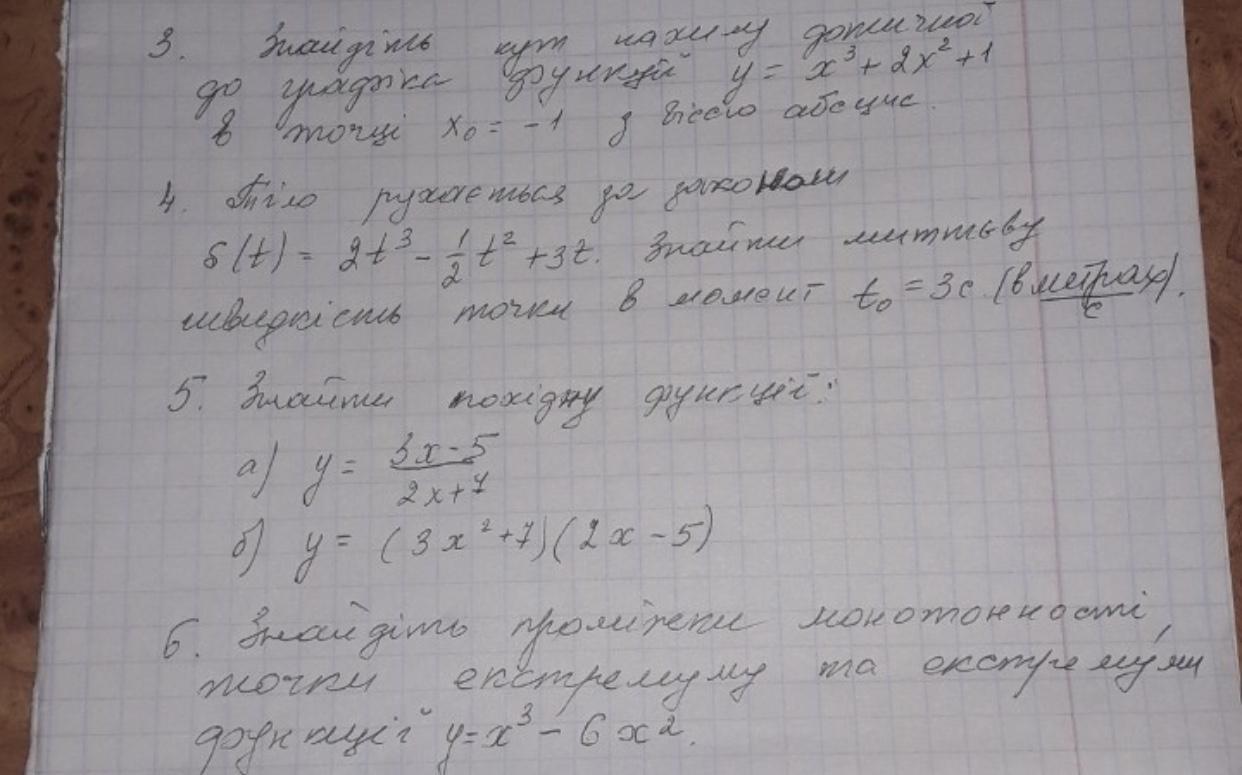 3. Знайдіть кут нахилу дотичної
до графіка функції y = x³ + 2x² + 1
в точці x₀ = -1 з віссю абсцис.
4. Тіло рухається за законом
S(t) = 2t³ - 1/2 t² + 3t. Знайти миттєву
швидкість точки в момент t₀ = 3с (в метрах/с).
5. Знайти похідну функції:
а) y = (3x - 5)/(2x + 7)
б) y = (3x² + 7)(2x - 5)
6. Знайдіть проміжки монотонності,
точки екстремуму та екстремуми
функції y = x³ - 6x².